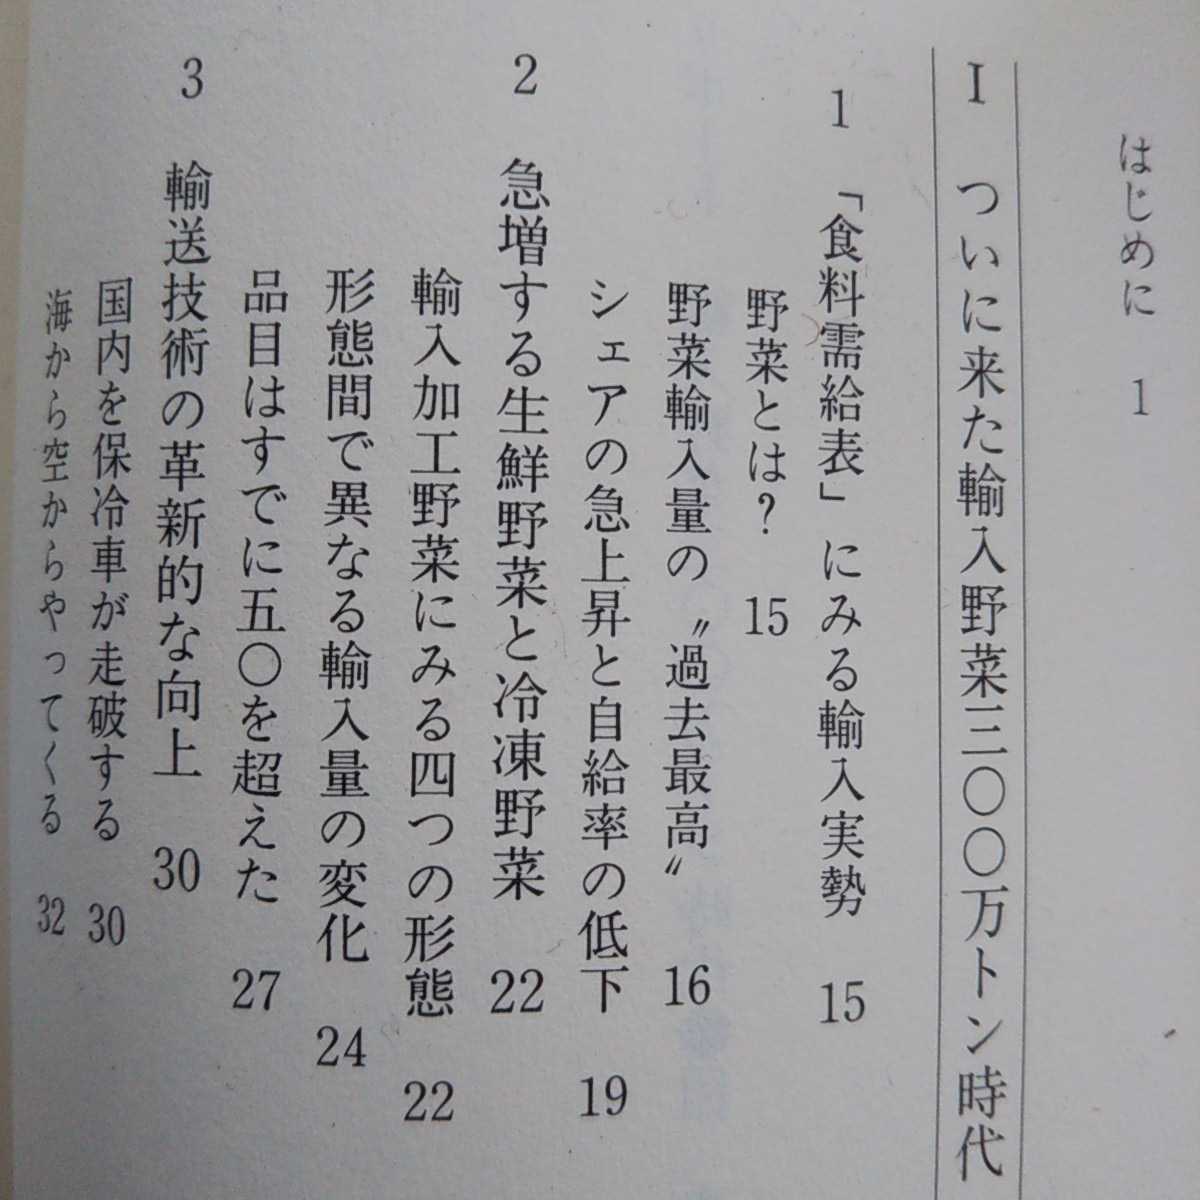 はじめに 1
I ついに来た輸入野菜三〇〇万トン時代
1 「食料需給表」にみる輸入実勢 15
野菜とは? 15
野菜輸入量の〝過去最高〟 16
シェアの急上昇と自給率の低下 19
2 急増する生鮮野菜と冷凍野菜 22
輸入加工野菜にみる四つの形態 22
形態間で異なる輸入量の変化 24
品目はすでに五〇を超えた 27
3 輸送技術の革新的な向上 30
国内を保冷車が走破する 30
海から空からやってくる 32